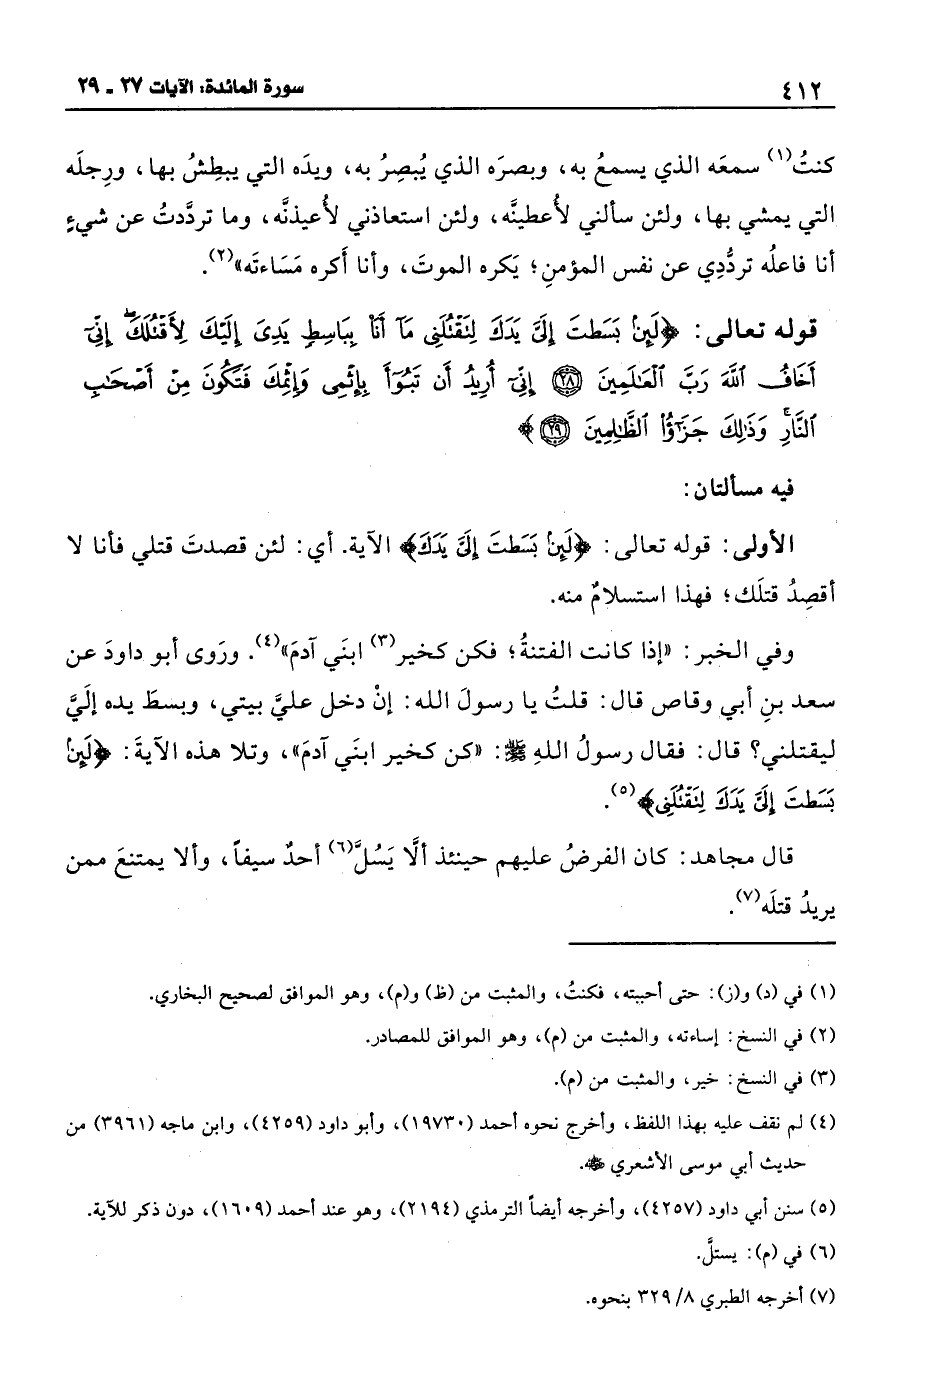 ٤١٢
سورة المائدة: الآيات ٢٧ ـ ٢٩
كنتُ(١) سمعَه الذي يسمعُ به، وبصرَه الذي يُبصِرُ به، ويدَه التي يبطِشُ بها، ورِجلَه
التي يمشي بها، ولئن سألني لأُعطينَّه، ولئن استعاذني لأُعيذنَّه، وما تردَّدتُ عن شيءٍ
أنا فاعلُه تردُّدِي عن نفس المؤمنِ؛ يَكره الموتَ، وأنا أَكره مَسَاءتَه»(٢).
قوله تعالى: ﴿لَئِنۢ بَسَطتَ إِلَيَّ يَدَكَ لِتَقْتُلَنِي مَآ أَنَا۠ بِبَاسِطٍ يَدِيَ إِلَيْكَ لِأَقْتُلَكَۖ إِنِّيٓ
أَخَافُ ٱللَّهَ رَبَّ ٱلْعَٰلَمِينَ ۝٢٨ إِنِّيٓ أُرِيدُ أَن تَبُوٓأَ بِإِثْمِي وَإِثْمِكَ فَتَكُونَ مِنْ أَصْحَٰبِ
ٱلنَّارِۚ وَذَٰلِكَ جَزَٰٓؤُا۟ ٱلظَّٰلِمِينَ ۝٢٩﴾
فيه مسألتان:
الأولى: قوله تعالى: ﴿لَئِنۢ بَسَطتَ إِلَيَّ يَدَكَ﴾ الآية. أي: لئن قصدتَ قتلي فأنا لا
أقصِدُ قتلَك؛ فهذا استسلامٌ منه.
وفي الخبر: «إذا كانت الفتنةُ؛ فكن كخير(٣) ابنَي آدمَ»(٤). ورَوى أبو داودَ عن
سعد بنِ أبي وقاص قال: قلتُ يا رسولَ الله: إنْ دخل عليَّ بيتي، وبسطَ يده إلَيَّ
ليقتلني؟ قال: فقال رسولُ اللهِ ﷺ: «كن كخير ابنَي آدمَ»، وتلا هذه الآيةَ: ﴿لَئِنۢ
بَسَطتَ إِلَيَّ يَدَكَ لِتَقْتُلَنِي﴾(٥).
قال مجاهد: كان الفرضُ عليهم حينئذ ألَّا يَسُلَّ(٦) أحدٌ سيفاً، وألا يمتنعَ ممن
يريدُ قتلَه(٧).
(١) في (د) و(ز): حتى أحببته، فكنتُ، والمثبت من (ظ) و(م)، وهو الموافق لصحيح البخاري.
(٢) في النسخ: إساءته، والمثبت من (م)، وهو الموافق للمصادر.
(٣) في النسخ: خير، والمثبت من (م).
(٤) لم نقف عليه بهذا اللفظ، وأخرج نحوه أحمد (١٩٧٣٠)، وأبو داود (٤٢٥٩)، وابن ماجه (٣٩٦١) من
حديث أبي موسى الأشعري ﷺ.
(٥) سنن أبي داود (٤٢٥٧)، وأخرجه أيضاً الترمذي (٢١٩٤)، وهو عند أحمد (١٦٠٩)، دون ذكر للآية.
(٦) في (م): يستلَّ.
(٧) أخرجه الطبري ٣٢٩/٨ بنحوه.